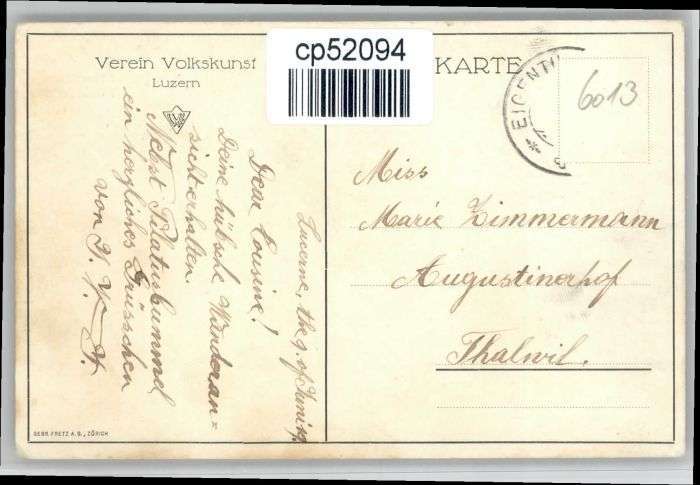 cp52094
Verein Volkskunst
Luzern
KARTE
EIGENTH
6013
Lucerne, the 9. of
Dear Cousine!
Deine hübsche Wunderan=
sicht erhalten.
Nebst Pilatusbummel
ein herzliches Grüsschen
von
Miss
Marie Zimmermann
Augustinerhof
Thalwil.
GEBR. FRETZ A.G., ZÜRICH